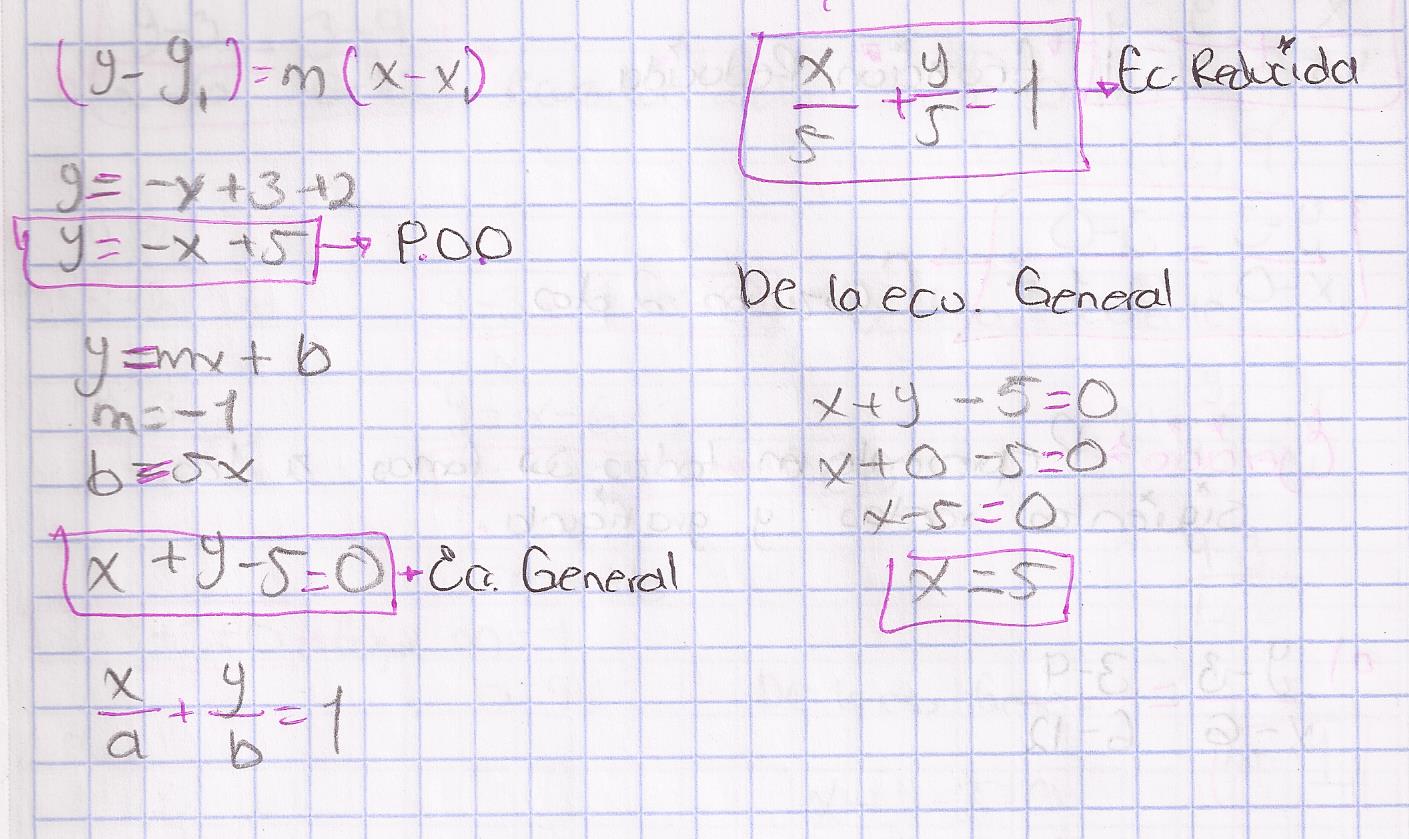 (y - y₁) = m (x - x₁)
y = -x + 3 + 2
y = -x + 5 → P.O.O
y = mx + b
m = -1
b = 5x
x + y - 5 = 0 → Ec. General
x/a + y/b = 1
x/5 + y/5 = 1 → Ec. Reducida
De la ecu. General
x + y - 5 = 0
x + 0 - 5 = 0
x - 5 = 0
x = 5